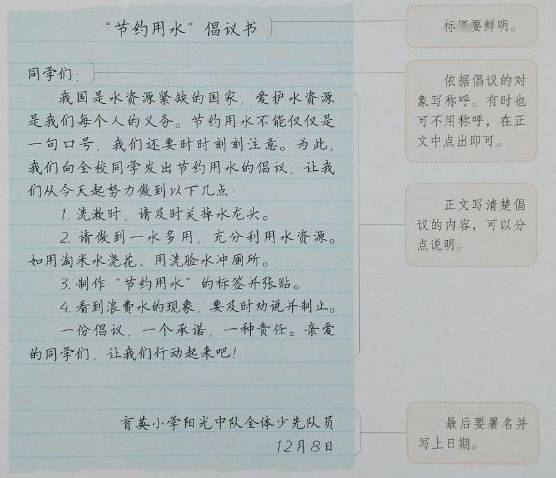 “节约用水”倡议书
同学们：
我国是水资源紧缺的国家，爱护水资源
是我们每个人的义务。节约用水不能仅仅是
一句口号，我们还要时时刻刻注意。为此，
我们向全校同学发出节约用水的倡议，让我
们从今天起努力做到以下几点：
1. 洗漱时，请及时关掉水龙头。
2. 请做到一水多用，充分利用水资源。
如用淘米水浇花、用洗脸水冲厕所。
3. 制作“节约用水”的标签并张贴。
4. 看到浪费水的现象，要及时劝说并制止。
一份倡议，一个承诺，一种责任。亲爱
的同学们，让我们行动起来吧！
育英小学阳光中队全体少先队员
12月8日
标题要鲜明。
依据倡议的对
象写称呼。有时也
可不用称呼，在正
文中点出即可。
正文写清楚倡
议的内容，可以分
点说明。
最后要署名并
写上日期。